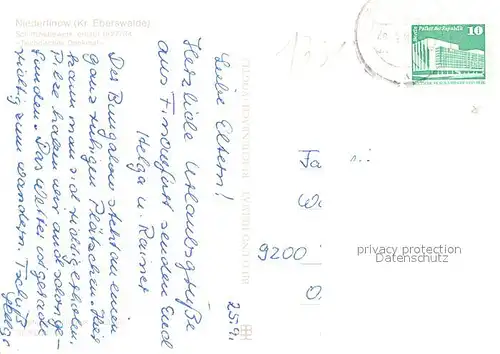 Niederfinow (Kr. Eberswalde)
Schiffshebewerk, erbaut 1927/34
- Technisches Denkmal -
25.9.
Liebe Eltern!
Herzliche Urlaubsgrüße
aus Finowfurt senden Euch
Helga u. Rainer
Der Bungalow steht an einem
ganz ruhigen Plätzchen. Hier
kann man sich richtig erholen.
Pilze haben wir auch schon ge-
funden. Das Wetter ist gerade
richtig zum wandern. Tschüß
Helga
Palast der Republik
10
Fa
9200
privacy protection
Datenschutz